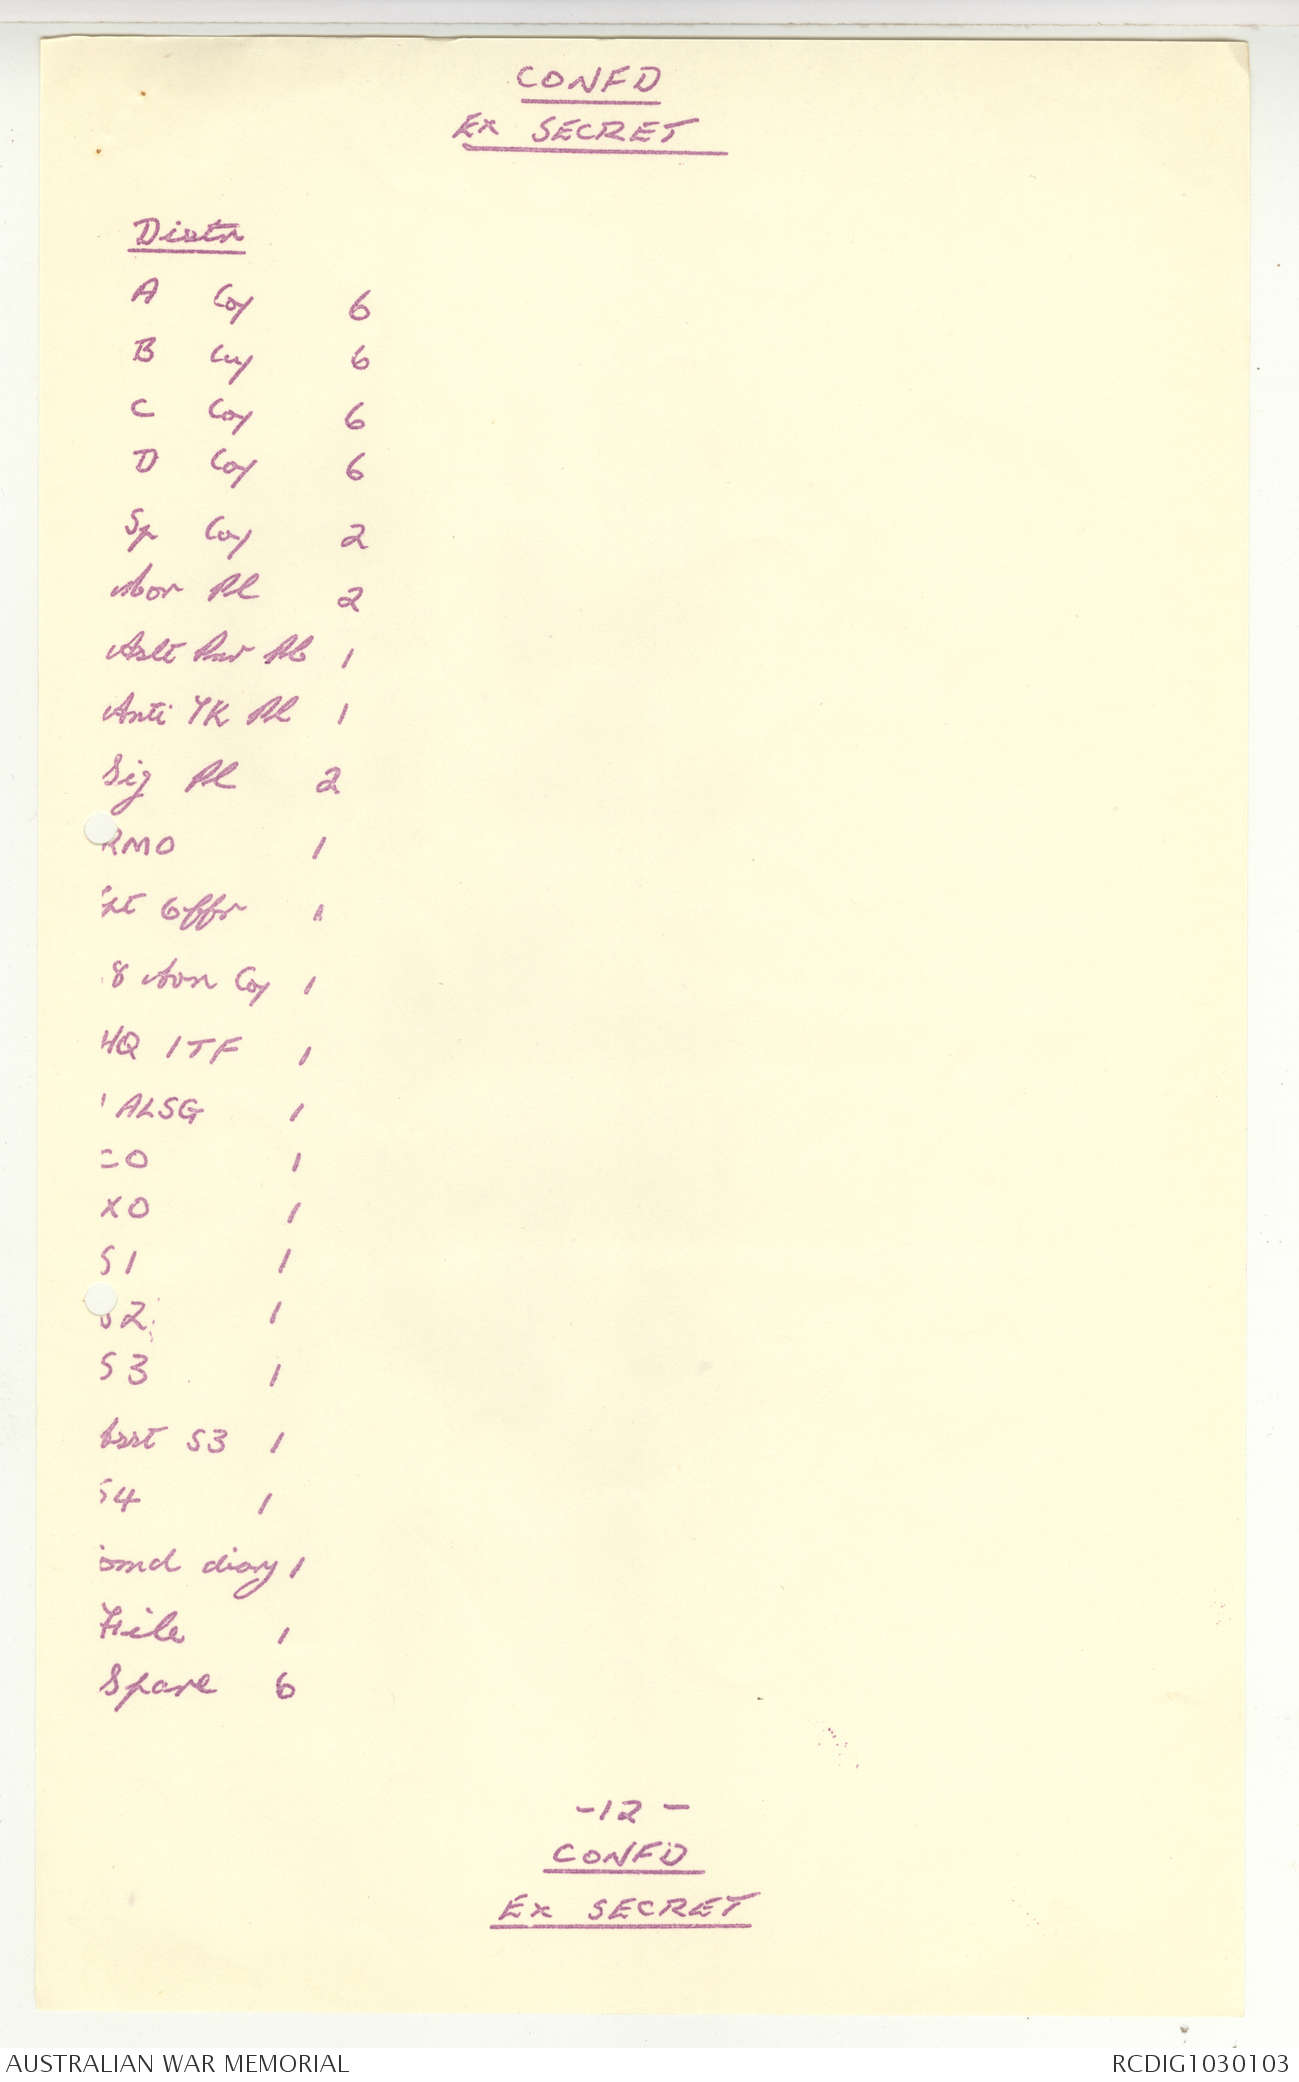 CONFD
Ex SECRET
Distr
A Coy 6
B Coy 6
C Coy 6
D Coy 6
Sp Coy 2
Mor Pl 2
Aslt Pnr Pl 1
Anti TK Pl 1
Sig Pl 2
RMO 1
Int Offr 1
8 Coy 1
HQ 1TF 1
1 ALSG 1
CO 1
XO 1
S1 1
S2 1
S3 1
Asst S3 1
S4 1
Comd diary 1
File 1
Spare 6
-12-
CONFD
Ex SECRET
AUSTRALIAN WAR MEMORIAL
RCDIG1030103